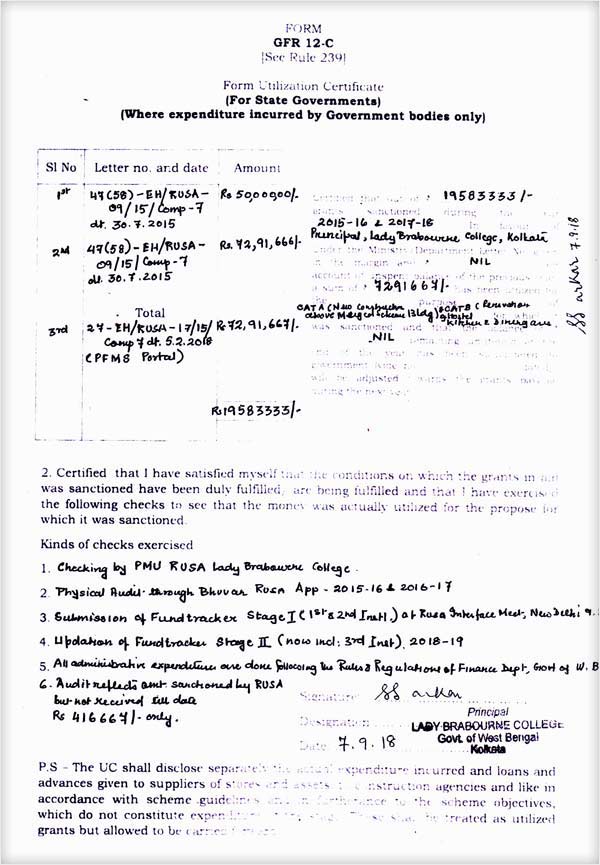 FORM
GFR 12-C
[See Rule 239]
Form Utilization Certificate
(For State Governments)
(Where expenditure incurred by Government bodies only)
Sl No Letter no. and date Amount
1st 47(58)-EH/RUSA-09/15/Comp-7 dt. 30.7.2015 Rs 5000000/-
2nd 47(58)-EH/RUSA-09/15/Comp-7 dt. 30.7.2015 Rs. 72,91,666/-
Total
3rd 27-EH/RUSA-17/15/Comp 7 dt. 5.2.2018 (PFMS Portal) Rs 72,91,667/-
Rs 19583333/-
Certified that out of Rs 19583333/-
sanctioned during the
2015-16 & 2017-18
Principal, Lady Brabourne College, Kolkata
under the Ministry/Department Letter No
in the margin and NIL
account of unspent balance of the previous
a sum of 7291667/- has been utilized
CATA (New Construction above Merged Scheme Bldg) & CATB (Renovation
was sanctioned and that the balance
NIL remaining
end of the year has been
government
will be adjusted
during the next year
7.9.18
2. Certified that I have satisfied myself that the conditions on which the grants in aid
was sanctioned have been duly fulfilled/ are being fulfilled and that I have exercised
the following checks to see that the money was actually utilized for the propose for
which it was sanctioned.
Kinds of checks exercised
1. Checking by PMU RUSA Lady Brabourne College.
2. Physical Audit through Bhuvan RUSA App - 2015-16 & 2016-17
3. Submission of Fundtracker Stage I (1st & 2nd Instl.) at Rusa Interface Meet, New Delhi 9.
4. Updation of Fundtracker Stage II (now incl: 3rd Inst), 2018-19
5. All administrative expenditure are done following the Rules & Regulations of Finance Dept, Govt of W. B
6. Audit reflects amt. sanctioned by RUSA
but not received till date
Rs 416667/- only.
Signature
Principal
Designation LADY BRABOURNE COLLEGE
Govt. of West Bengal
Date 7.9.18 Kolkata
P.S - The UC shall disclose separately the actual expenditure incurred and loans and
advances given to suppliers of stores and assets, construction agencies and like in
accordance with scheme guidelines and in furtherance to the scheme objectives,
which do not constitute expenditure at the stage. These shall be treated as utilized
grants but allowed to be carried